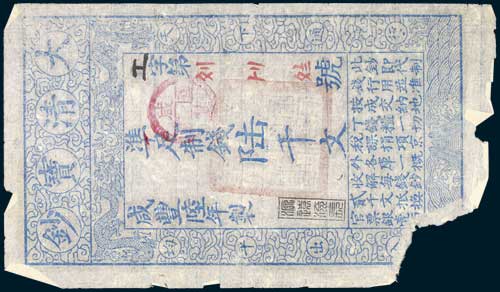 大清寶鈔
工字第 號
準足制錢陸千文
咸豐陸年製
此鈔即代制
錢行用並准
按成交納地
丁錢糧一切
稅課捐項京
外各庫一概
收解每錢鈔
貳千文抵換
官票銀